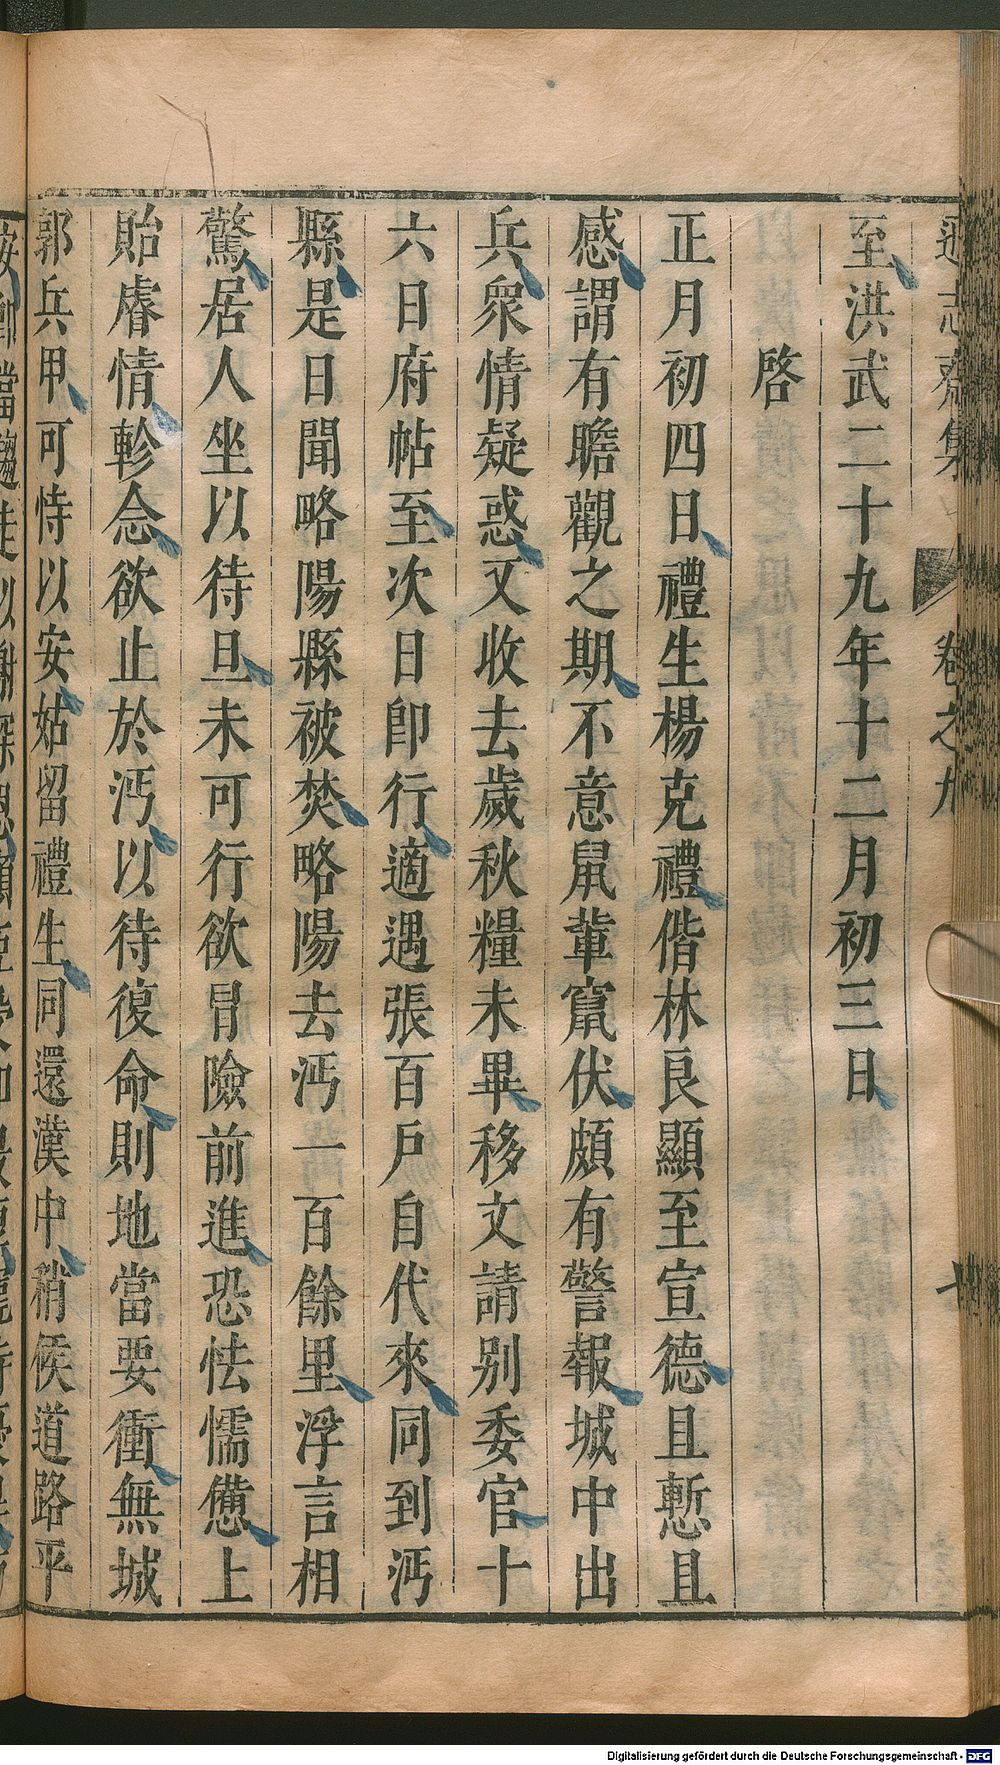 遜志齋集
卷之九
至洪武二十九年十二月初三日
啓
正月初四日禮生楊克禮偕林良顯至宣德且慙且
感謂有瞻觀之期不意鼠輩竄伏頗有警報城中出
兵衆情疑惑又收去歲秋糧未畢移文請别委官十
六日府帖至次日卽行適遇張百戶自代來同到沔
縣是日聞略陽縣被焚略陽去沔一百餘里浮言相
驚居人坐以待旦未可行欲冒險前進恐怯懦憊上
貽睿情軫念欲止於沔以待復命則地當要衝無城
郭兵甲可恃以安姑留禮生同還漢中稍俟道路平
Digitalisierung gefördert durch die Deutsche Forschungsgemeinschaft - DFG